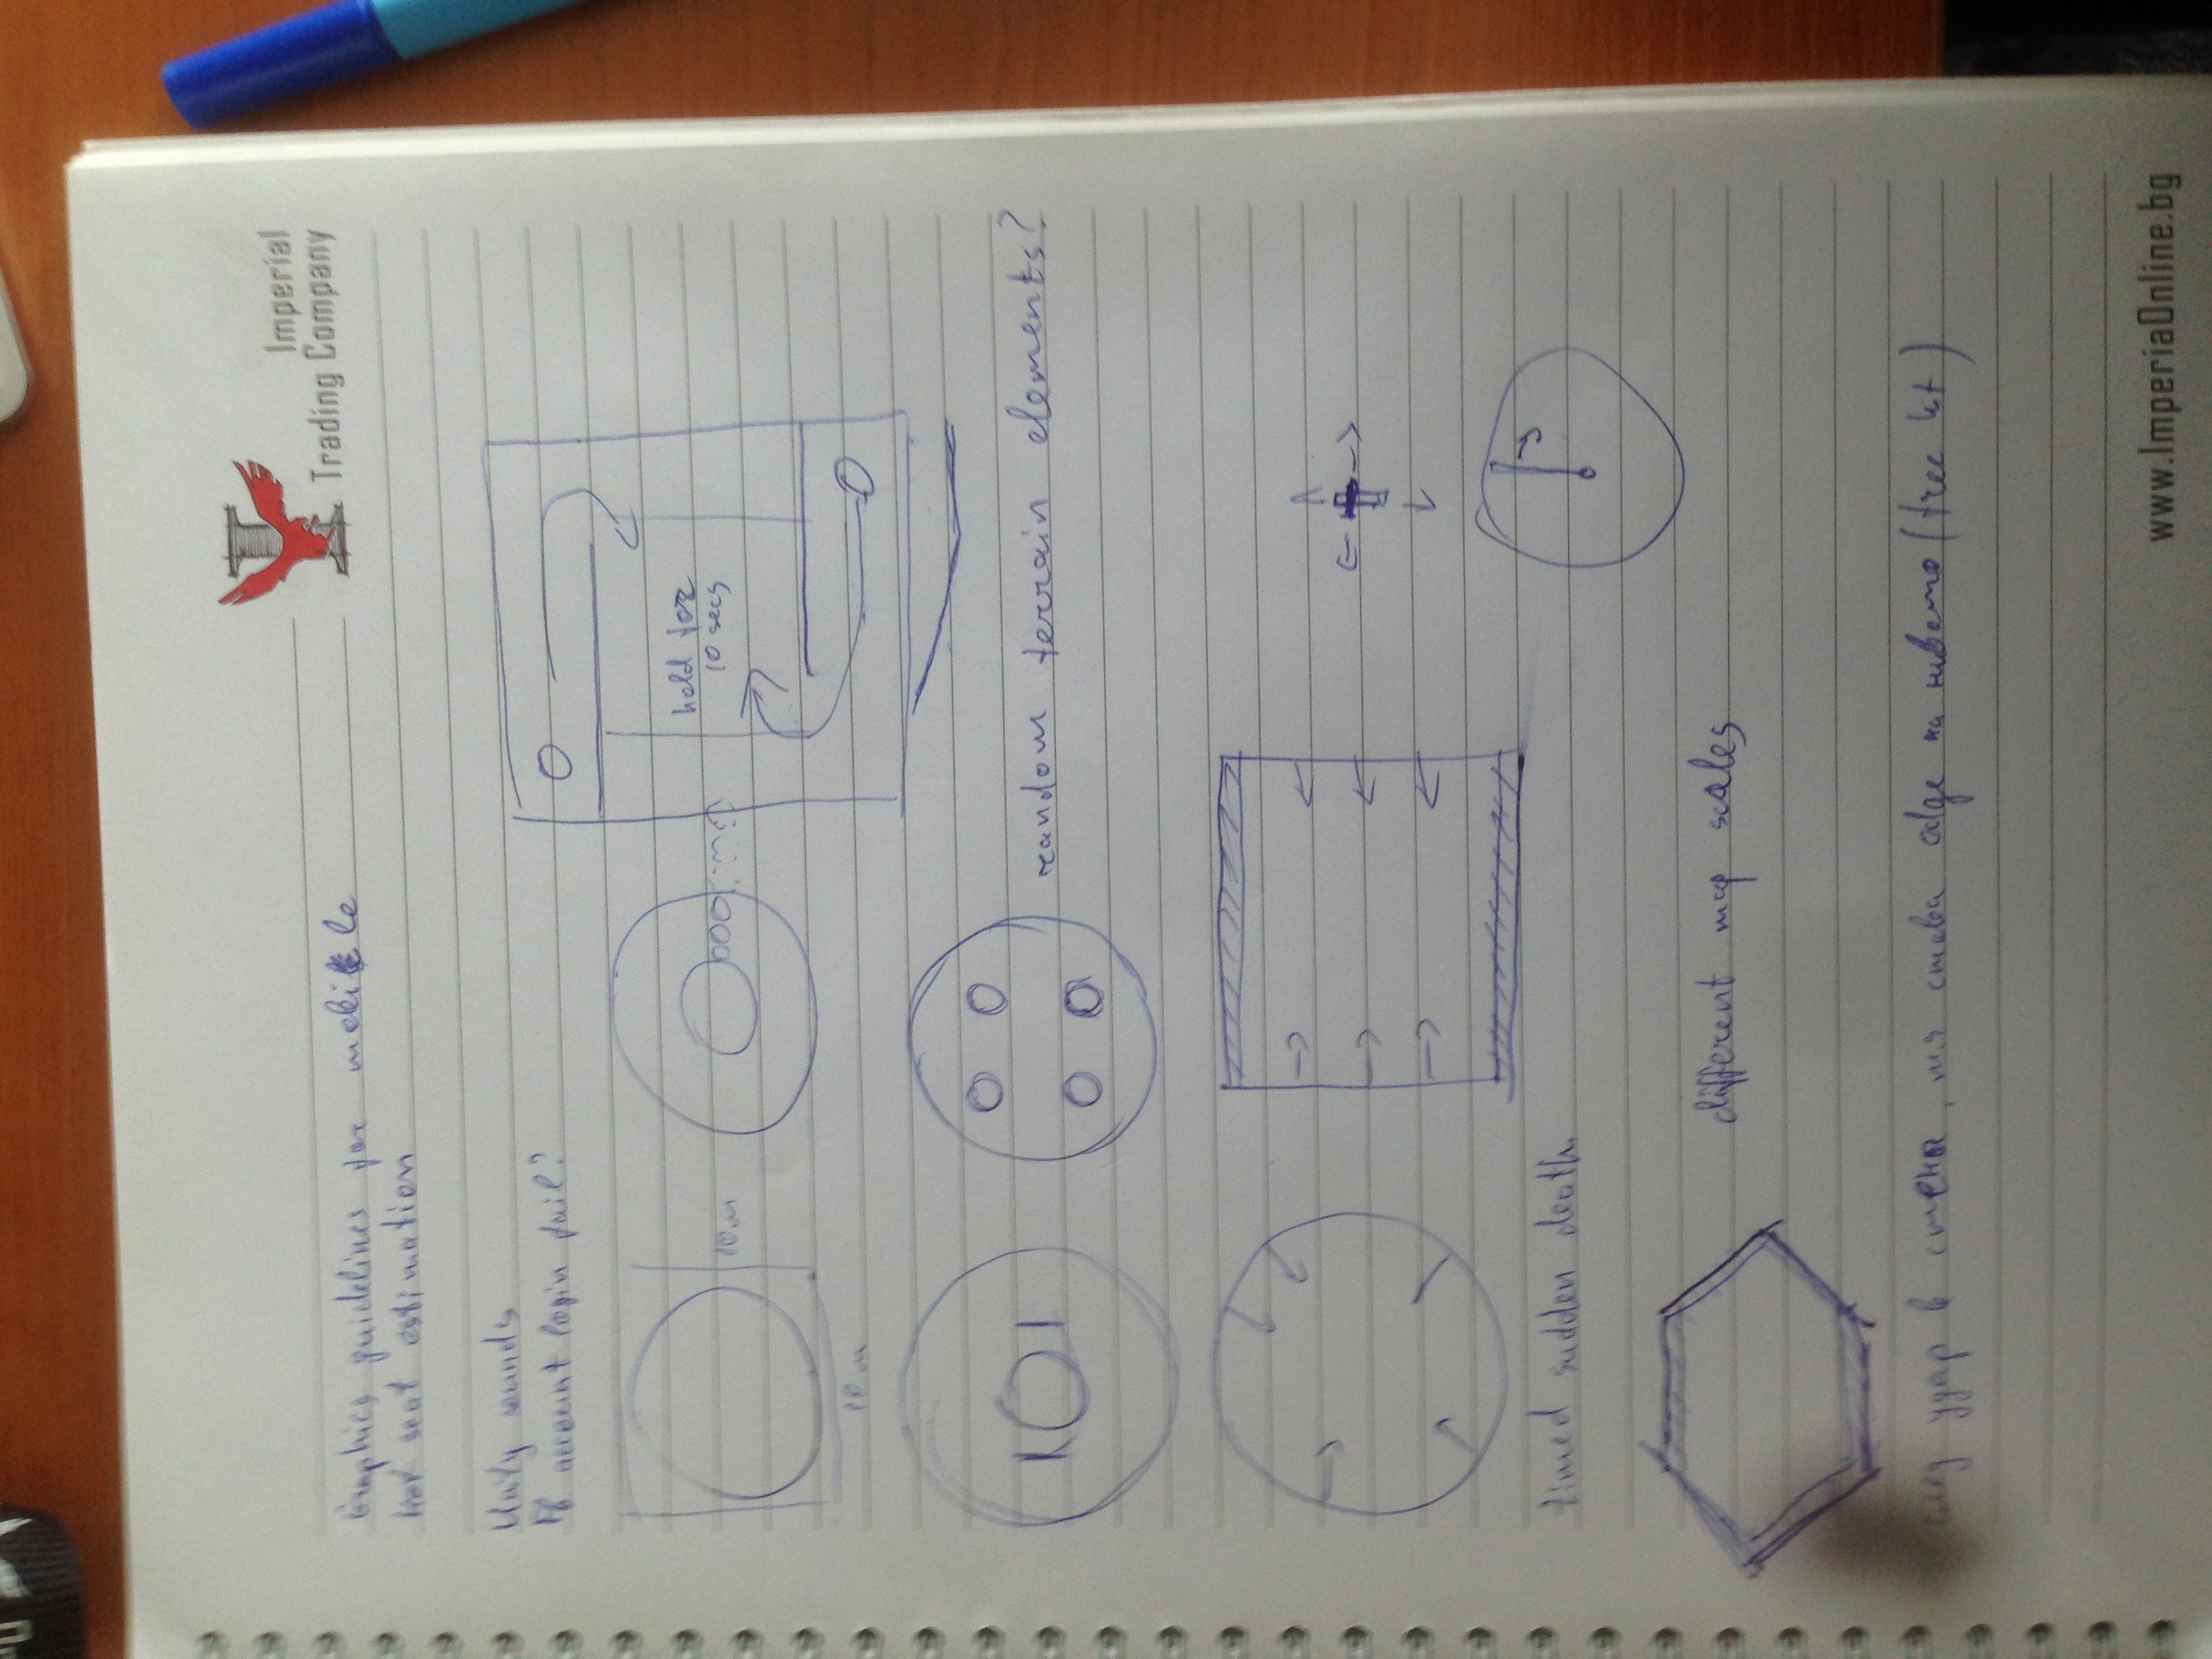 Imperial
Trading Company
Graphics guidelines for mobile
Hot seat estimation
Unity sounds
Fb account login fail?
hold for
10 secs
10m
10m
random terrain elements?
timed sudden death
different map scales
след удар в стена, тя става edge на нивото (free hit)
www.ImperiaOnline.bg